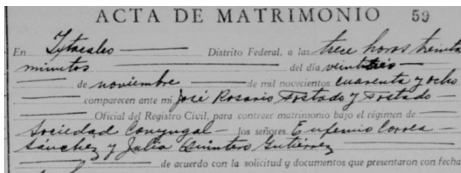 ACTA DE MATRIMONIO 59
En Iztacalco Distrito Federal, a las trece horas treinta
minutos del día veintitres
de noviembre de mil novecientos cuarenta y ocho
comparecen ante mi José Rosario Tostado y Tostado
Oficial del Registro Civil, para contraer matrimonio bajo el régimen de
Sociedad Conyugal los señores Eufemio Correa
Sánchez y Julia Quintero Gutiérrez
de acuerdo con la solicitud y documentos que presentaron con fecha